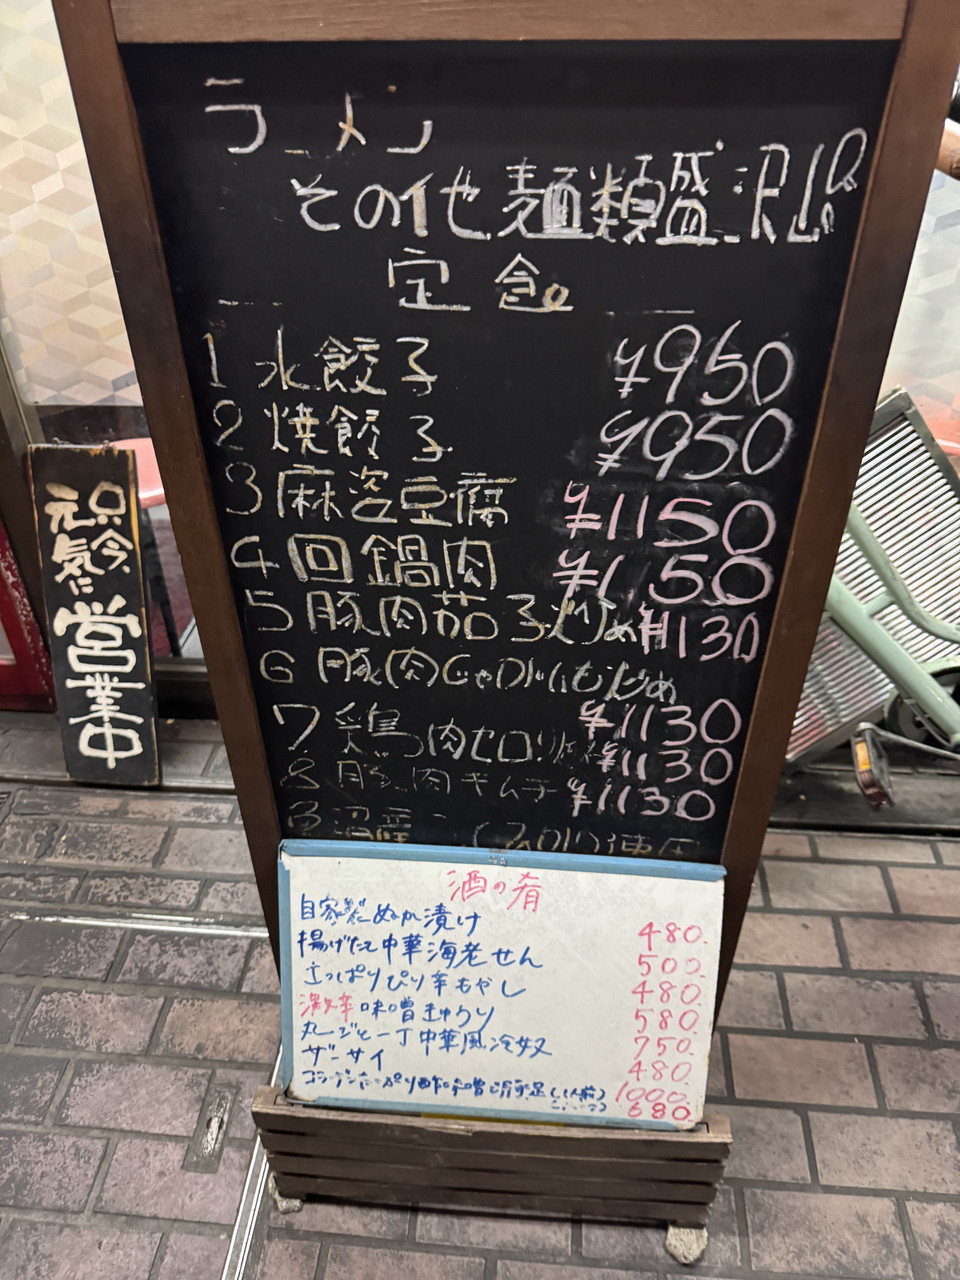 ラーメン
その他麺類盛沢山
定食
1 水餃子 ¥950
2 焼餃子 ¥950
3 麻婆豆腐 ¥1150
4 回鍋肉 ¥1150
5 豚肉茄子炒め ¥1130
6 豚肉じゃが
¥1130
7 鶏肉セロリ ¥1130
8 豚肉キムチ ¥1130
只今、
元気に
営業中
酒の肴
自家製ぬか漬け 480.
揚げたて中華海老せん 500.
ぴり辛もやし 480.
激辛味噌きゅうり 580.
丸ごと一丁中華風冷奴 750.
ザーサイ 480.
(1人前) 1000.
680